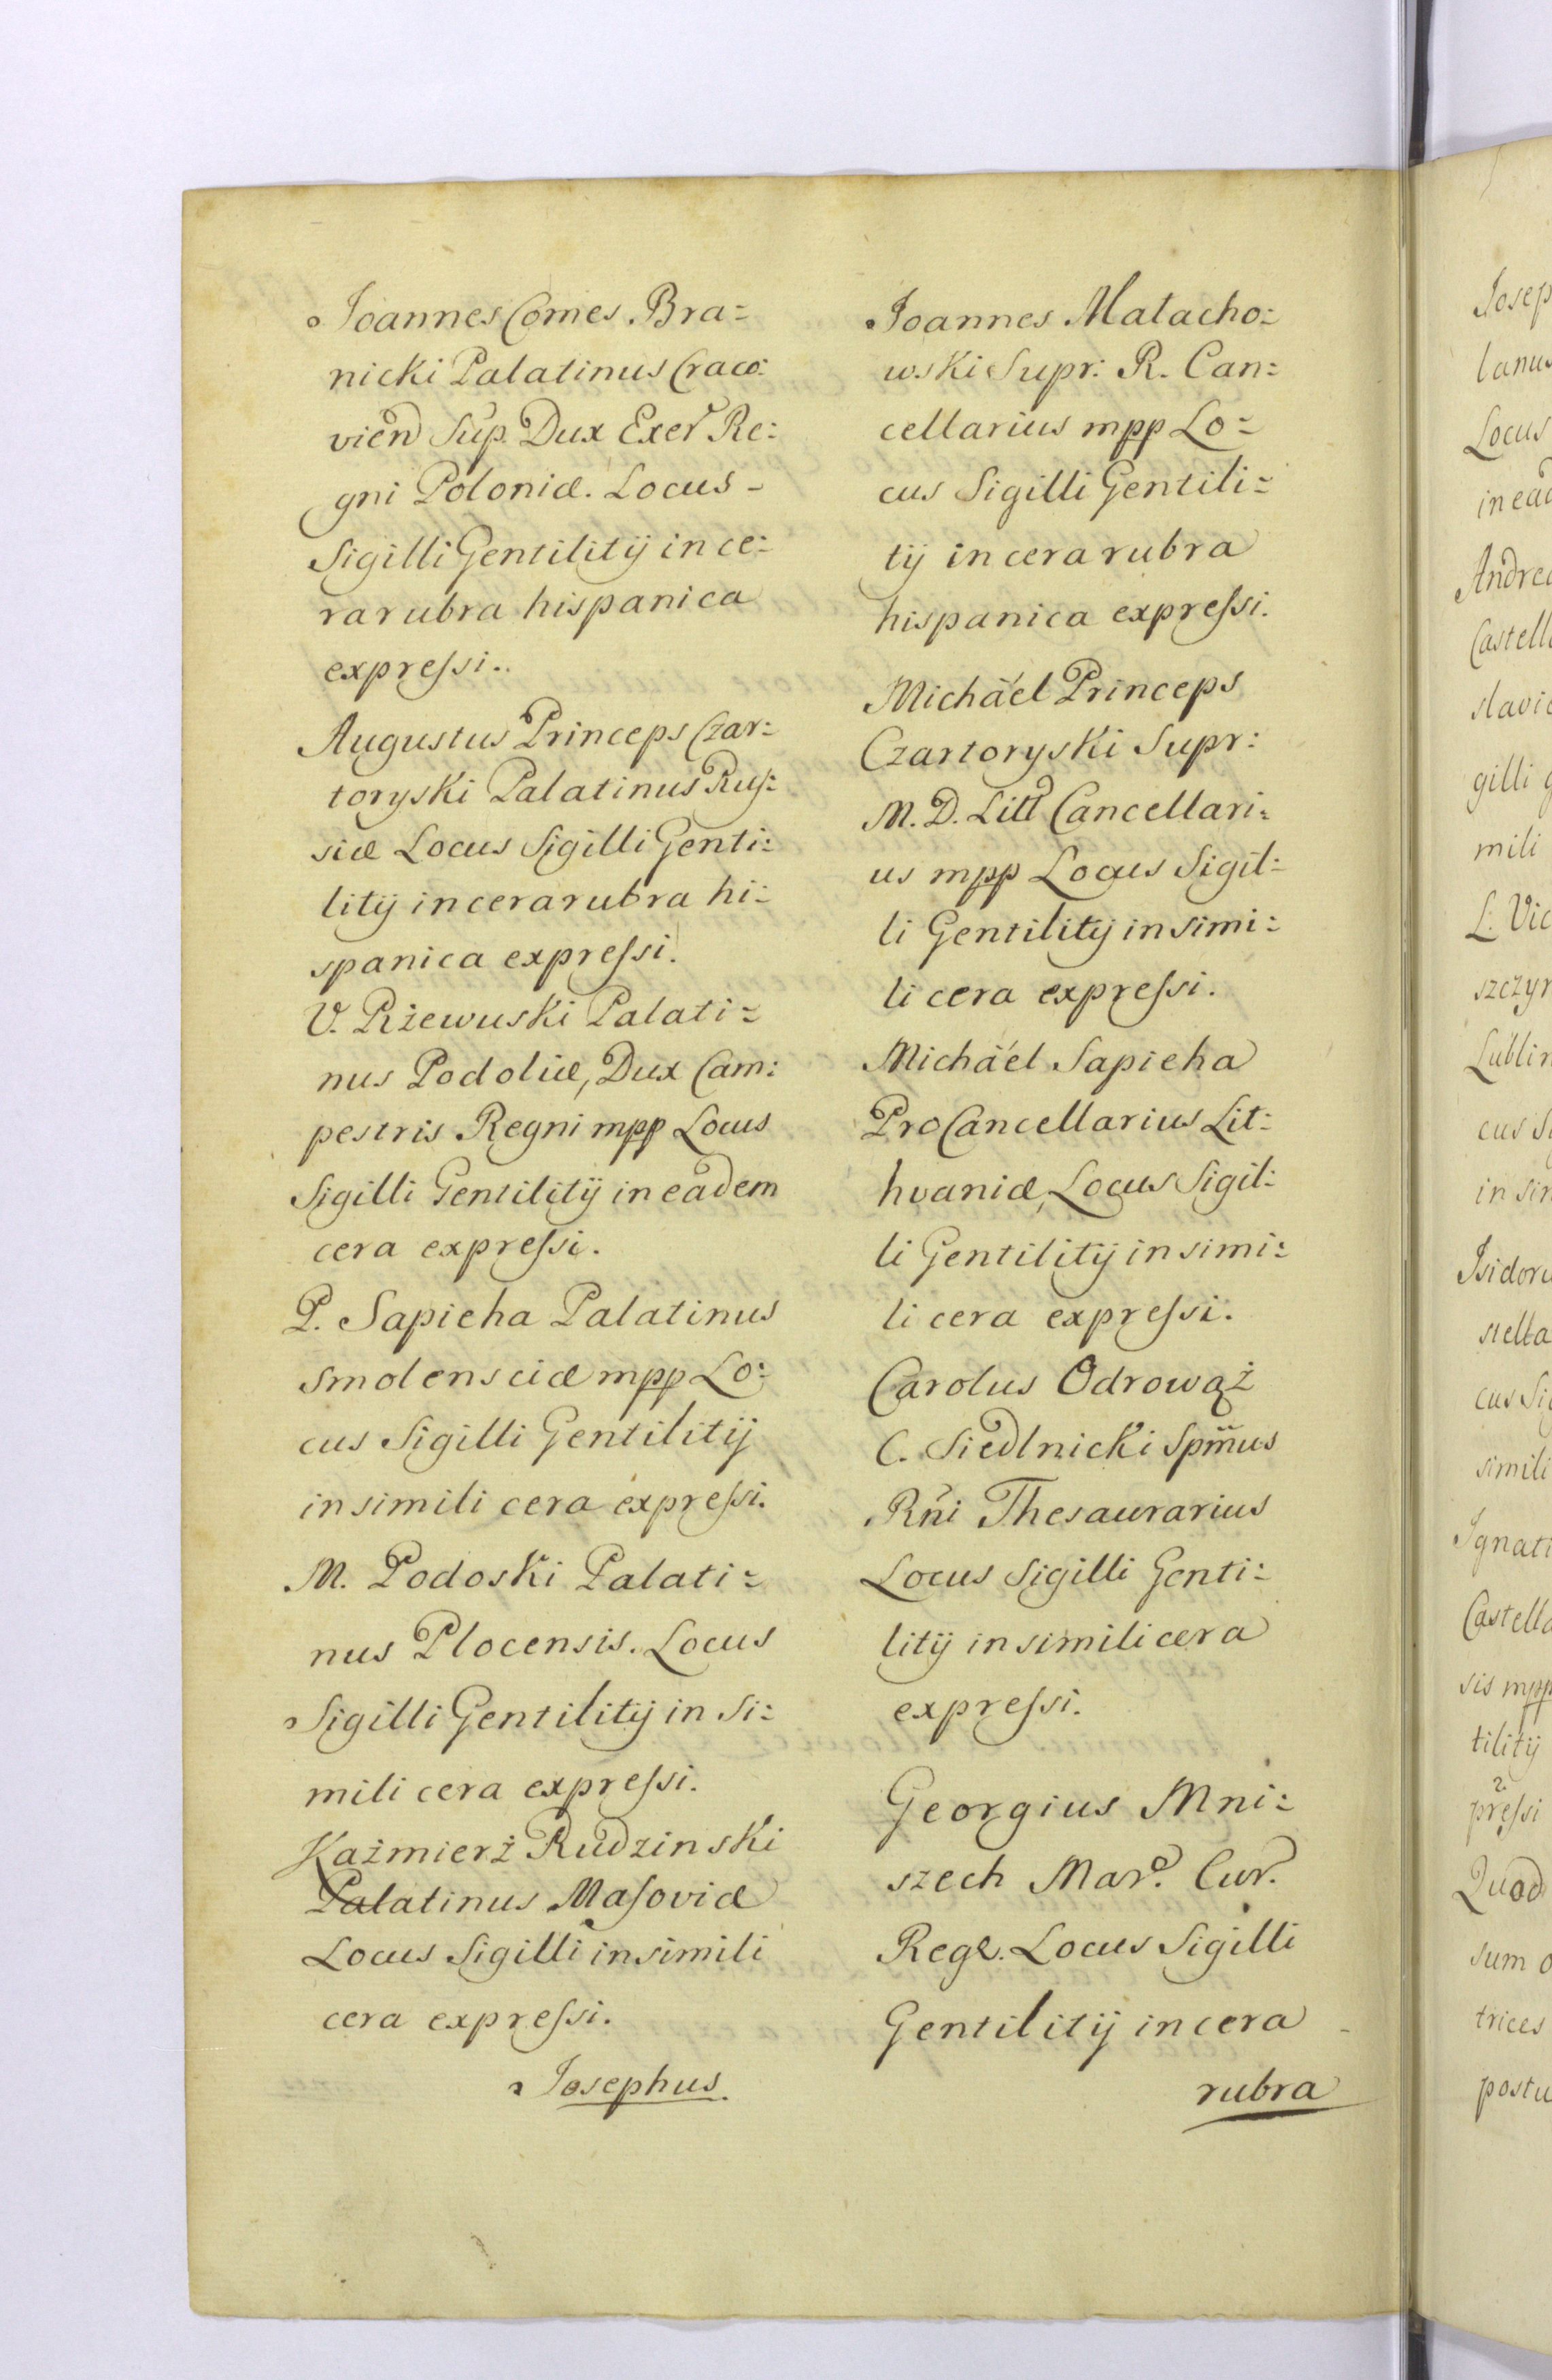 Joannes Comes Bra=
nicki Palatinus Craco:
vien Sup. Dux Exer Re:
gni Poloniæ. Locus -
Sigilli Gentilitij in ce:
ra rubra hispanica
expreſsi..
Augustus Princeps Czar:
toryski Palatinus Ruſ:
siæ Locus Sigilli Genti:
litij in cera rubra hi:
spanica expreſsi.
V. Rżewuski Palati=
nus Podoliæ, Dux Cam:
pestris Regni mpp Locus
Sigilli Gentilitij in eadem
cera expreſsi.
P. Sapieha Palatinus
Smolensciæ mpp Lo:
cus Sigilli Gentilitij
in simili cera expreſsi.
M. Podoski Palati=
nus Plocensis. Locus
Sigilli Gentilitij in Si:
mili cera expreſsi.
Kaźmierż Rudzinski
Palatinus Maſoviæ
Locus Sigilli in simili
cera expreſsi.
Josephus.
Joannes Małacho:
wski Supr: R. Can:
cellarius mpp Lo=
cus Sigilli Gentili=
tij in cera rubra
hispanica expreſsi.
Michäel Princeps
Czartoryski Supr:
M. D. Litt Cancellari:
us mpp Locus Sigil:
li Gentilitij in simi:
li cera expreſsi.
Michäel Sapieha
ProCancellarius Lit:
hvaniæ, Locus Sigil:
li Gentilitij in simi:
li cera expreſsi.
Carolus Odrowąż
C. Siedlnicki Spmus
Rni Thesaurarius
Locus Sigilli Genti:
litij in simili cera
expreſsi.
Georgius Mni:
szech Mar. Cur.
Regs. Locus Sigilli
Gentilitij in cera
rubra
Josep
lanus
Locus
in ead
Andrea
Castell
slavie
gilli g
mili
L. Vic
szczyn
Lublin
cus Si
in sim
Isidoru
stella
cus Sig
simili
Ignati
Castella
sis mpp
tilitij
preſsi
Quod
sum o
trices
postu